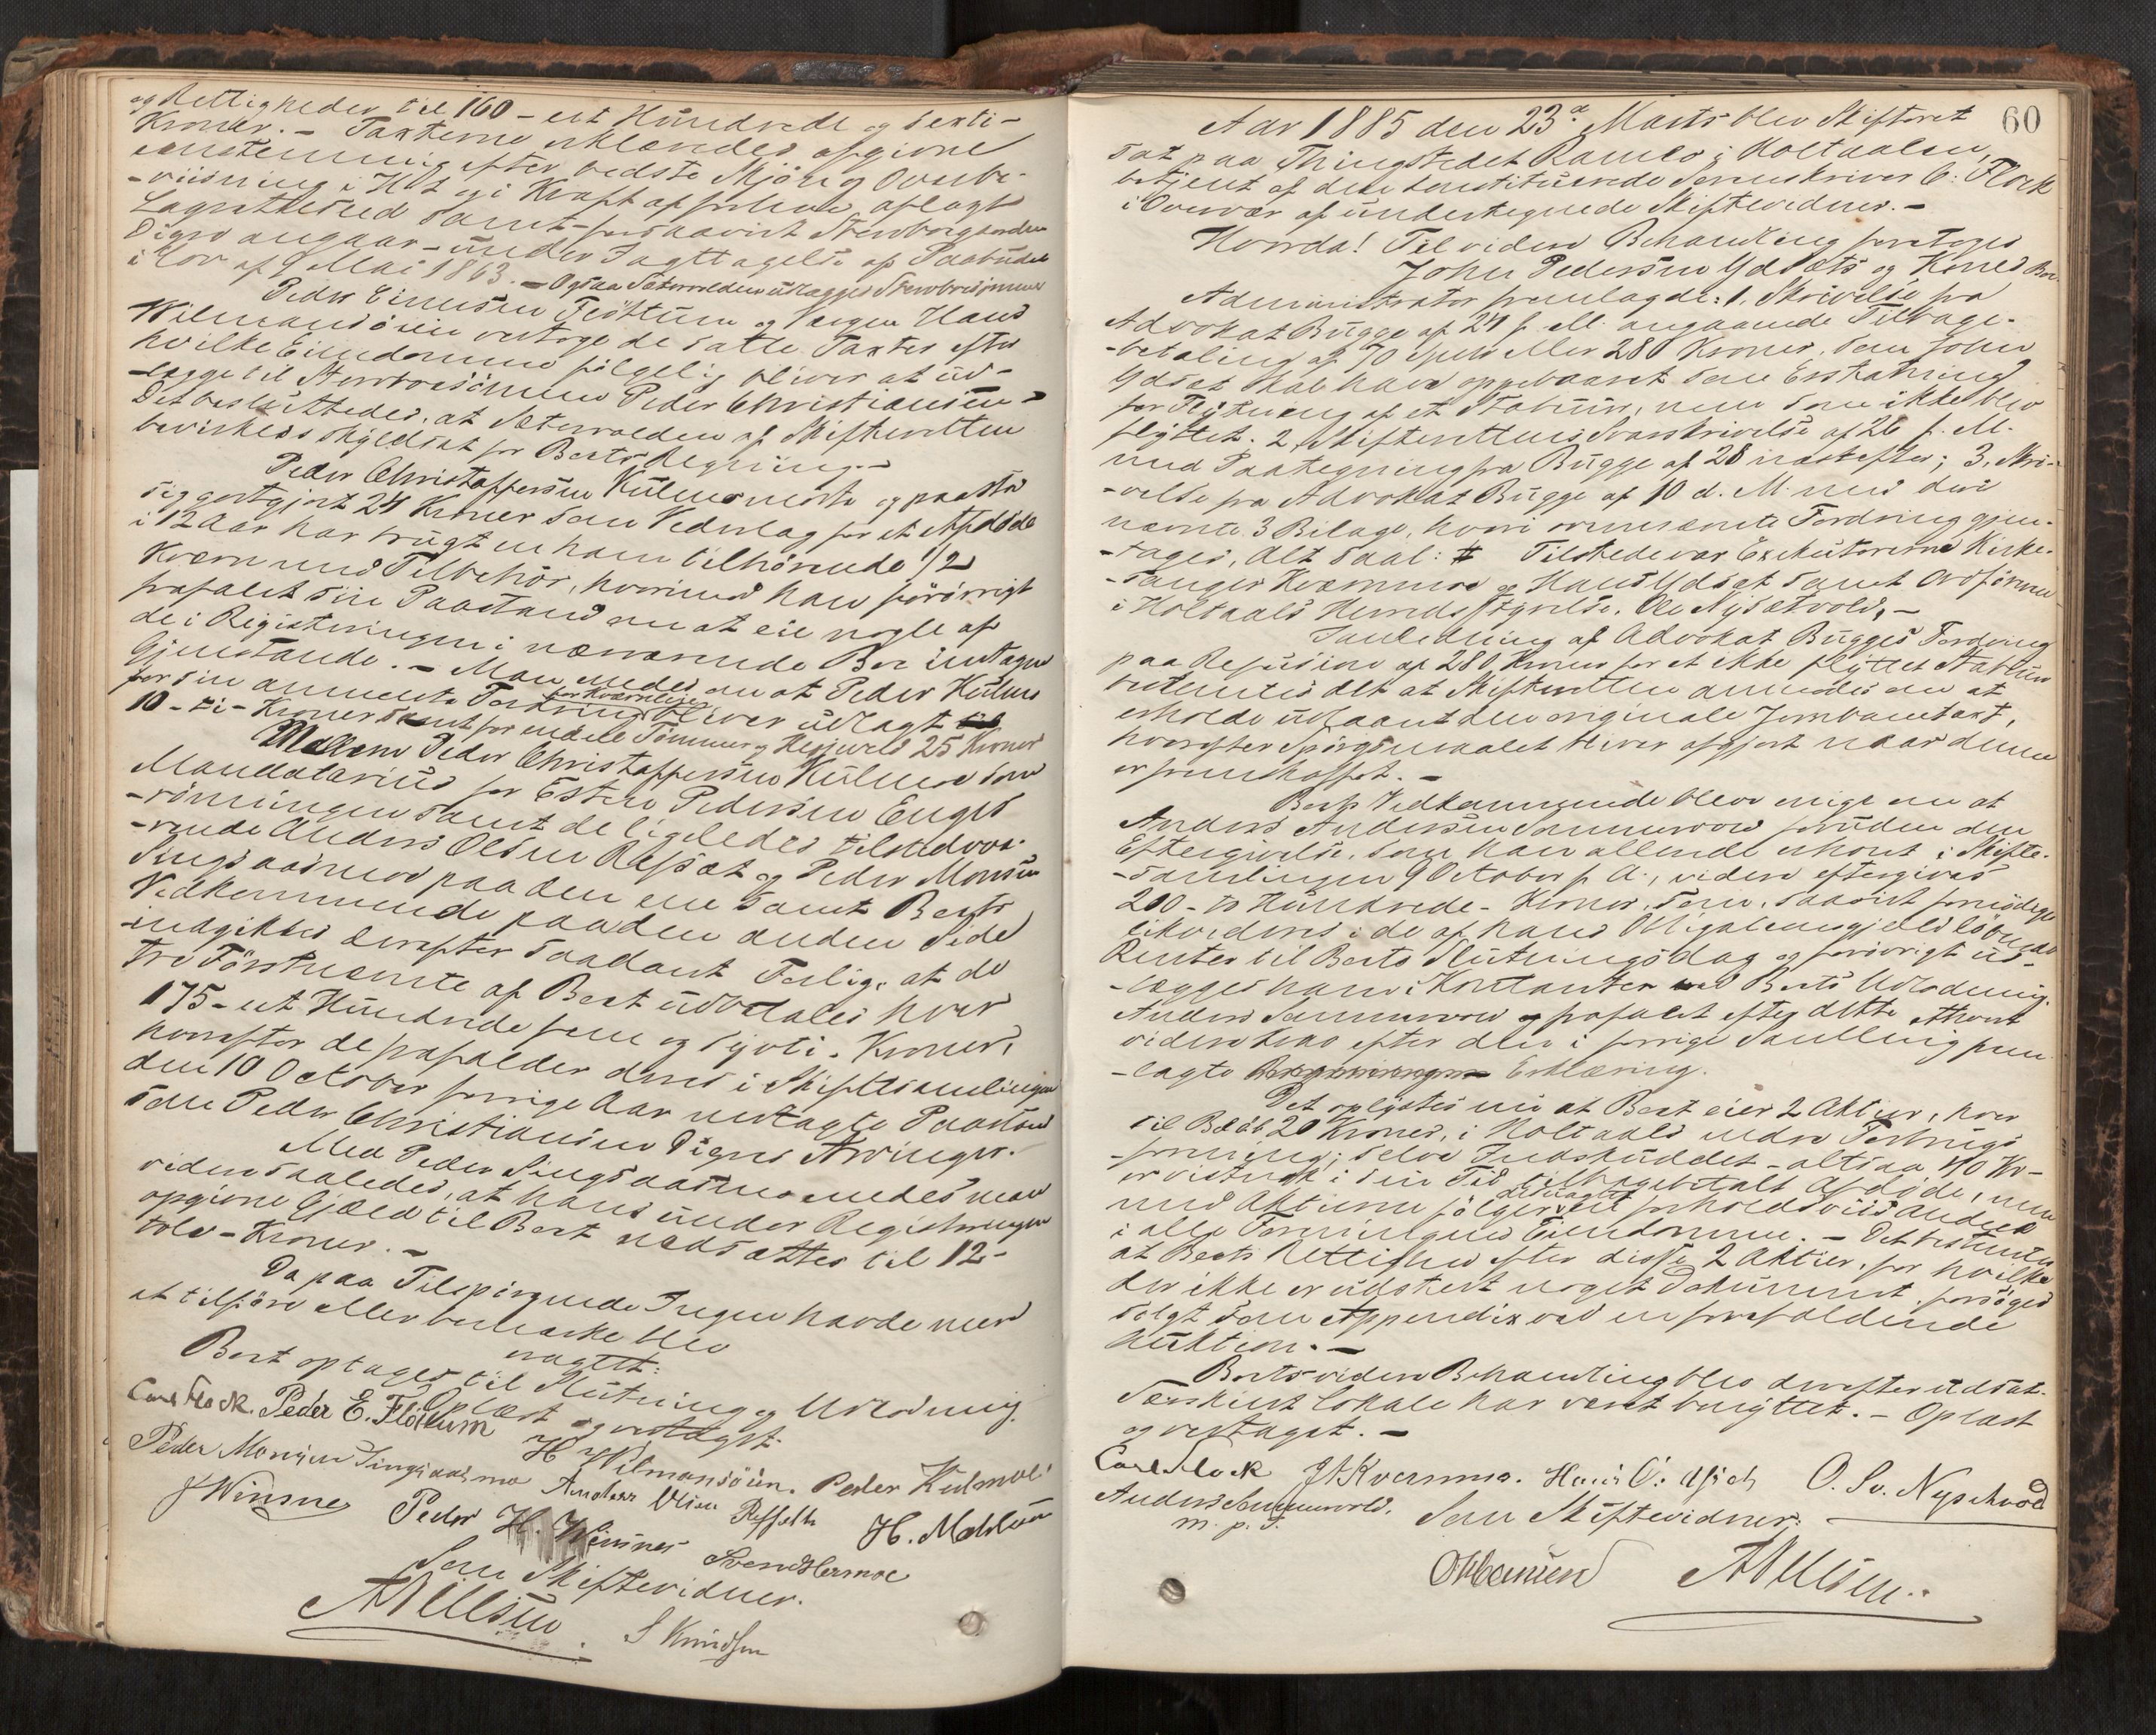 og Rettigheder til 160 - et Hundrede og sexti-
Kroner. - Taxterne erklæredes afgivne
eenstemmig efter bedste Skjøn og Overbe-
-viisning i Hht og i Kraft af forhen aflagt
Lagretteseed samt - forsaavidt Stervborgaarden
Digre angaar - under Iagttagelse af Paabudet
i Lov af 9 Mai 1863. - Ogsaa Sætervolden udlægges Stervbosønnen
Peder Einersen Fløttum og Vergen Hans
Wilmansøien vedtoge de satte Taxter efter
hvilke Eiendommene følgelig bliver at ud-
-lægge til Stervbosønnen Peder Christiansen -
Det besluttedes, at Sætervolden af Skifteretten
bevirkes skyldsat for Boets Regning. -
Peder Christoffersen Kulmo mødte og paastod
sig godtgjort 24 Kroner som Vederlag for at Afdøde
i 12 Aar har brugt en ham tilhørende 1/2
Kværn med Tilbehør, hvorimod han forøvrigt
frafaldt sin Paastand om at eie nogle af
de i Registreringen i nærværende Bo indtagne
Gjenstande. - Man enedes om at Peder Kulmo
for sin anmeldte Fordring for Kværnleie bliver udlagt
10 - ti - Kroner samt for endeel Tømmer og Hesjeved 25 Kroner
Mellem Peder Christoffersen Kulmo som
Mandatarius for Esten Pedersen Enget
-rønningen samt de ligeledes tilstedevæ-
-rende Anders Olsen Refsæt og Peder Monsen
Singsaasmo paa den ene samt Boets
Vedkommende paa den anden Side
indgikkes derefter saadant Forlig, at de
tre Førstnævnte af Boet udbetales hver
175 - et Hundrede fem og syvti - Kroner,
hvorefter de frafalder deres i Skiftesamlingen
den 10 October forrige Aar nedlagte Paastand
som Peder Christiansen Digres Arvinger.
Med Peder Singsaasmo enedes man
videre saaledes, at hans under Registreringen
opgivne Gjæld til Boet nedsattes til 12 -
tolv - Kroner. -
Da paa Tilspørgende Ingen havde mere
at tilføre eller bemærke blev
eragtet:
Boet optages til Slutning og Udlodning.
Oplæst og vedtaget.
Carl Flock. Peder E. Fløttum
H Wilmansöien. Peder Kulmoe
Peder Monsen Singsaasmo Anders Olsen Refseth
J Winsne Peder H. Winsnes H. Moslien
Svend Hermoe
Som Skiftevidner.
A Nilsen S Knudsen
60
Aar 1885 den 23de Marts blev Skifteret
sat paa Thingstedet Ramlo i Holtaalen,
betjent af den constituerede Sorenskriver C. Flock
i Overvær af undertegnede Skiftevidner. -
Hvorda! Til videre Behandling foretoges
John Pedersen Ydsæts og Kones Bo.
Administrator fremlagde: 1. Skrivelse fra
Advokat Bugge af 24 f. M. angaaende Tilbage-
-betaling af 70 Spd eller 280 Kroner, som John
Ydsæt skal have oppebaaret som Erstatning
for Flytning af et Stabuur, men som ikke blev
flyttet. 2, Skifterettens Svarskrivelse af 26 f. M.
med Paategning fra Bugge af 28 næstefter; 3, Skri-
-velse fra Advokat Bugge af 10 d. M. med deri
nævnte 3 Bilage, hvori ovennævnte Fordring gjen-
-tages, Alt saal: # Tilstede var Exekutorerne Kirke-
-sanger Kvernmo og Hans Ydsæt samt Ordføreren
i Holtaals Herredsstyrelse, Ole Nysætvold, -
I Anledning af Advokat Bugges Fordring
paa Refusion af 280 Kroner for et ikke flyttet Stabuur
vedtoges det at Skifteretten anmodes om at
erholde udlaant den originale Jernbanetaxt,
hvorefter Spørgsmaalet bliver afgjort naar denne
er fremskaffet. -
Boets Vedkommende blev enige om at
Anders Andersen Sommervold foruden den
Eftergivelse, som han allerede erholdt i Skifte-
-samlingen 9 October f. A., videre eftergives
200 - to Hundrede - Kroner, som, saavidt fornødiges
likvideres i de af hans Obligationsgjeld løbende
Renter til Boets Slutningsdag og forøvrigt ud-
-lægges ham i Kontanter ved Boets Udlodning.
Anders Sommervold frafaldt efter dette ethvert
videre Krav efter den i forrige Samling frem-
-lagte Erklæring.
Det oplystes nu at Boet eier 2 Aktier, hver
til Beløb 20 Kroner, i Holtaals nedre Forbrugs
-forening; selve Indskuddet - altsaa 40 Kr -
er vistnok i sin Tid tilbagebetalt Afdøde, men
med Aktierne følger desuagtet en forholdsviis Andeel
i alle Foreningens Eiendomme. - Det bestemtes
at Boets Rettighed efter disse 2 Aktier, for hvilke
der ikke er udstedt noget Dokument, forsøges
solgt som Appendix ved en forefaldende
Auktion. -
Boets videre Behandling blev derefter udsat.
Særskilt Lokale har været benyttet. - Oplæst
og vedtaget. -
Carl Flock J Kvernmo. Hans O: Ydset O. Sv. Nysetvold
Anders Sommervold.
m. p. P.
Som Skiftevidner:
O Hansen A Nilsen.